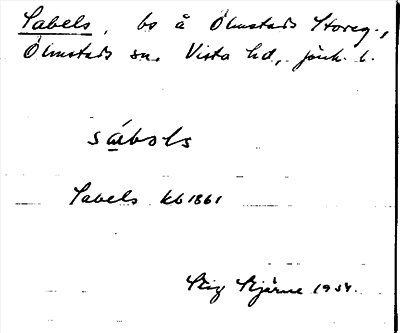 Sabels, bs å Ölmstads Storeg.,
Ölmstads sn. Vista hd, Jönk. l.
sábols
Sabels kb 1861
Stig Stjärne 1934.